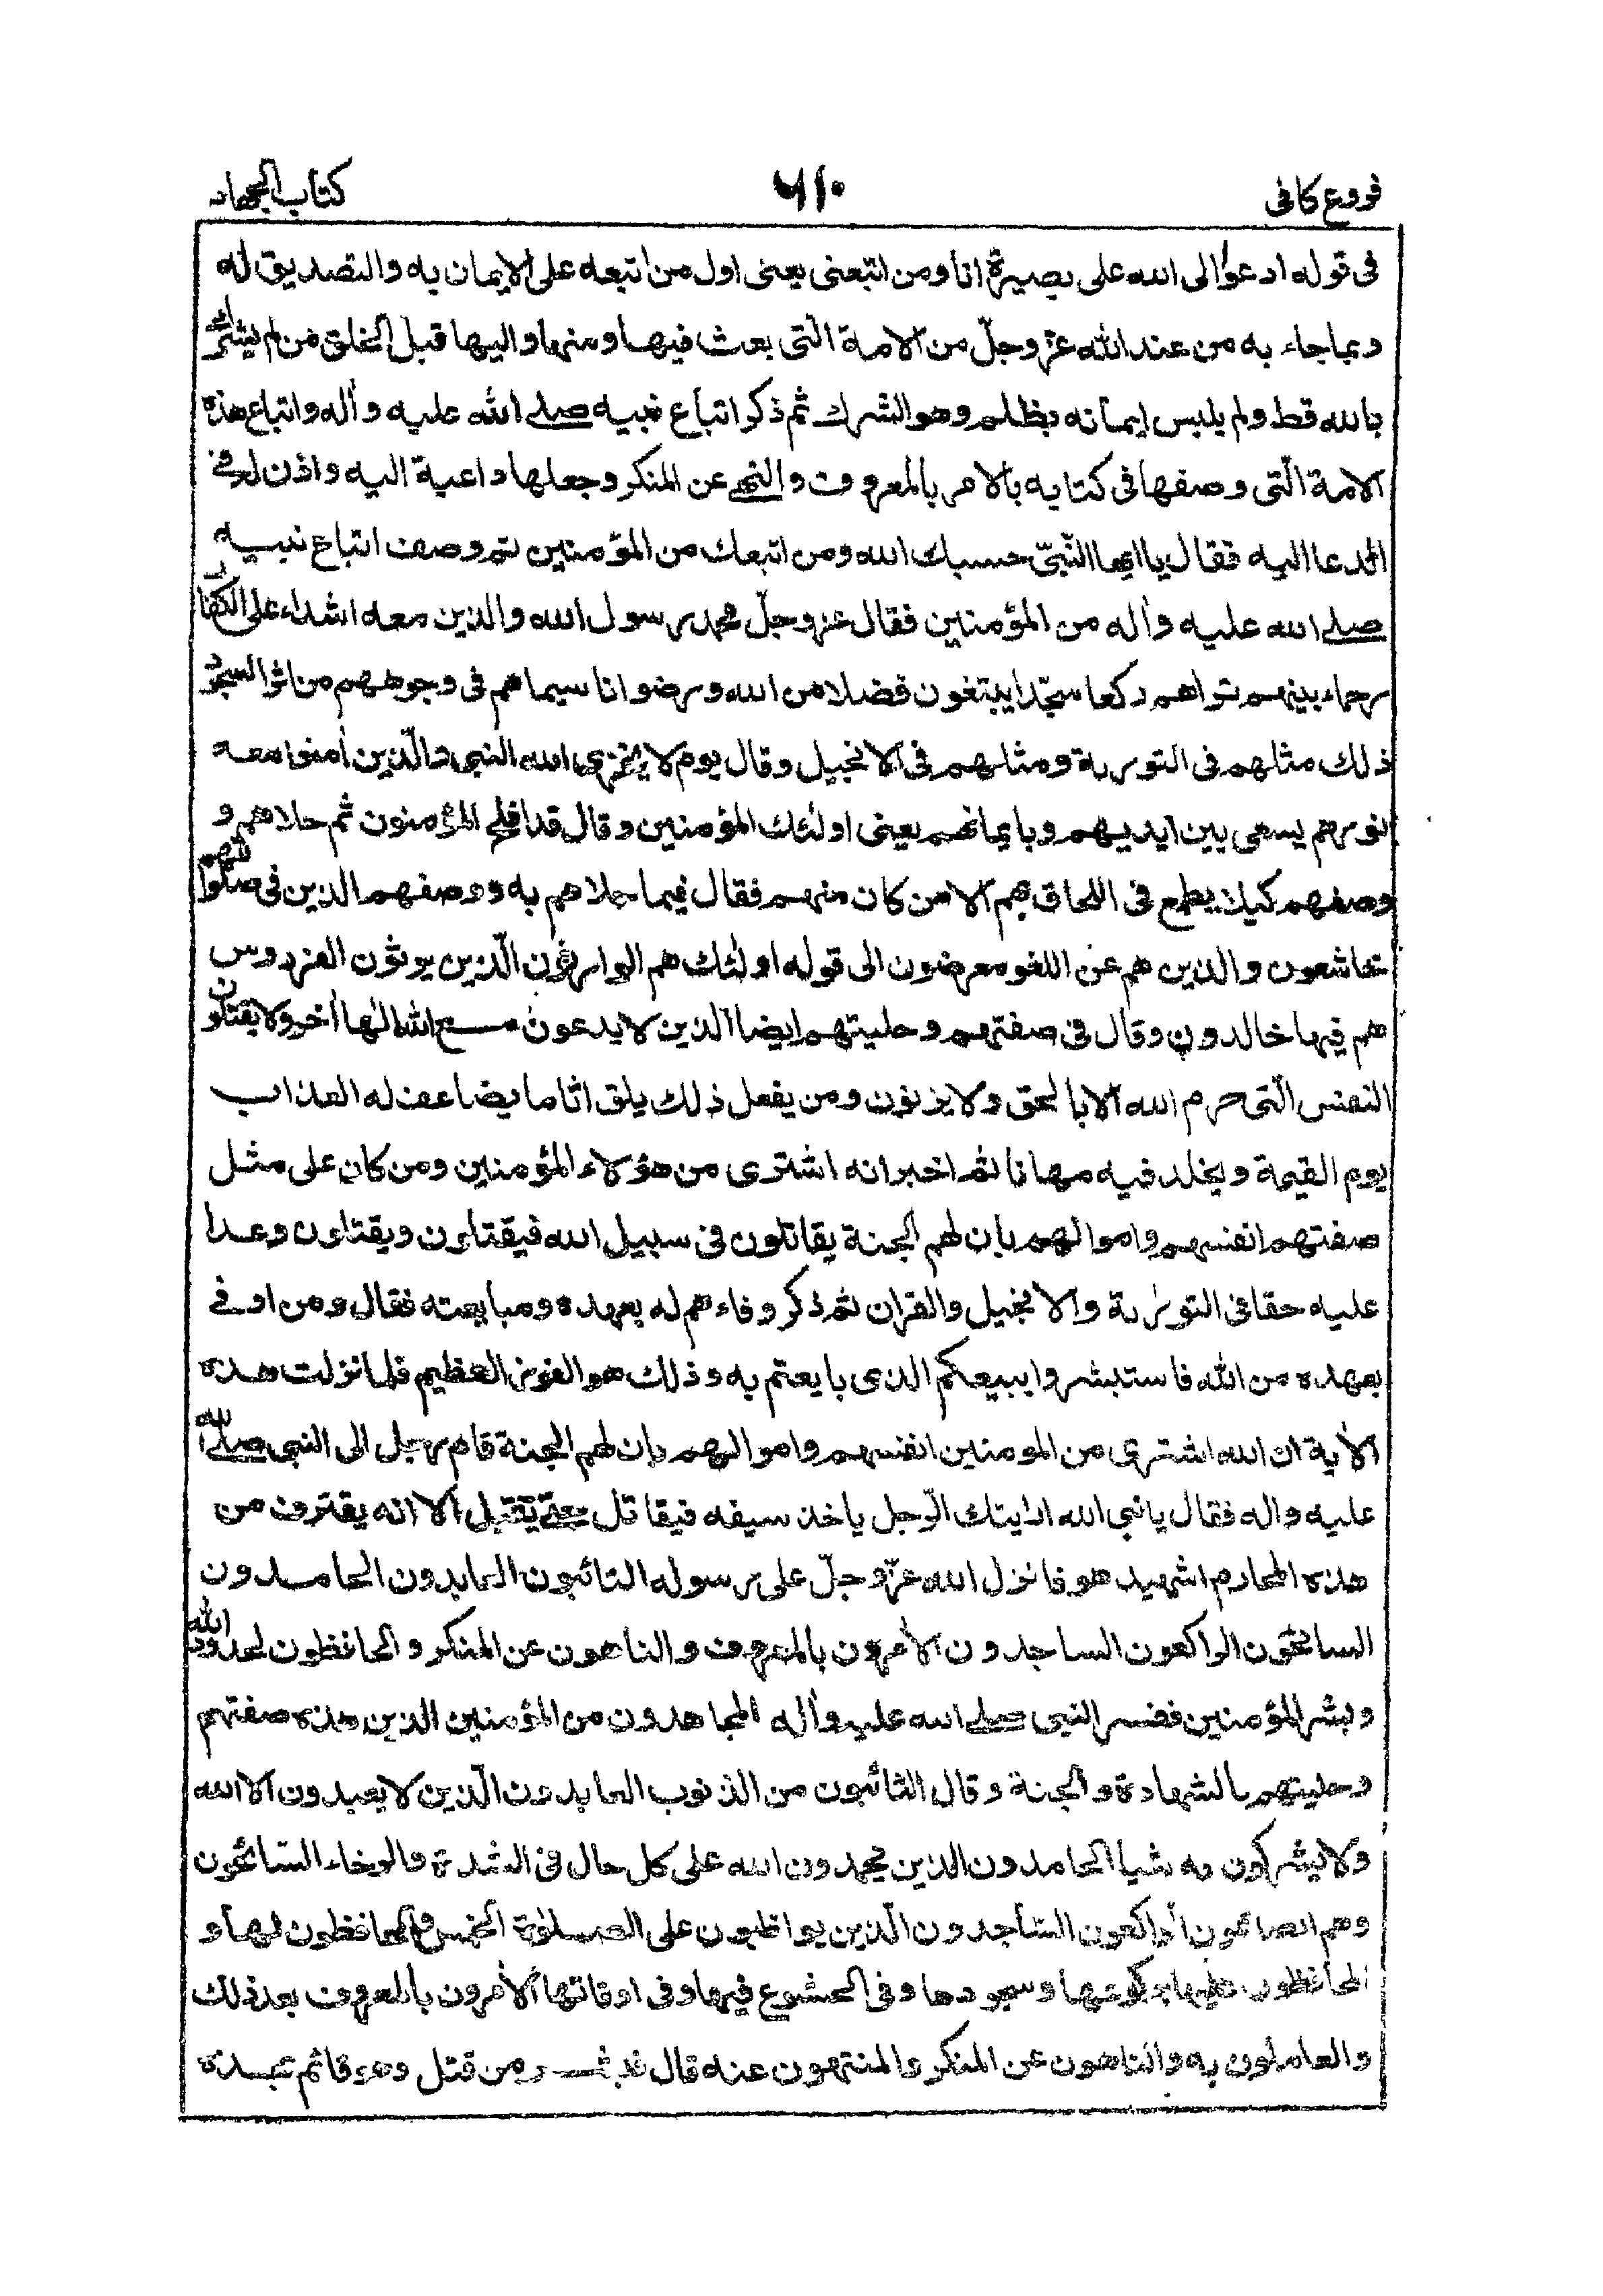 فروع كافى ٦١٠ كتاب الجهاد
فى قوله ادعوا الى الله على بصيرة انا ومن اتبعنى يعنى اول من اتبعه على الايمان به والتصديق له
وبما جاء به من عند الله عزّوجلّ من الامة الّتى بعث فيها ومنها واليها قبل الخلق من لم يشرك
بالله قط ولم يلبس ايمانه بظلم وهو الشرك ثم ذكر اتباع نبيه صلى الله عليه وآله واتباع هذه
الامة الّتى وصفها فى كتابه بالامر بالمعروف والنهى عن المنكر وجعلها داعية اليه واذن له فى
الدعا اليه فقال يا ايها النّبىّ حسبك الله ومن اتبعك من المؤمنين ثم وصف اتباع نبيه
صلى الله عليه وآله من المؤمنين فقال عزوجلّ محمد رسول الله والذين معه اشداء على الكفار
رحماء بينهم تراهم ركعا سجّدا يبتغون فضلا من الله ورضوانا سيماهم فى وجوههم من اثر السجود
ذلك مثلهم فى التورية ومثلهم فى الانجيل وقال يوم لا يخزى الله النبى والّذين آمنوا معه
نورهم يسعى بين ايديهم وبايمانهم يعنى اولئك المؤمنين وقال قد افلح المؤمنون ثم حلاهم و
وصفهم كيلا يطمع فى اللحاق بهم الا من كان منهم فقال فيما حلاهم به ووصفهم الذين فى صلوتهم
خاشعون والذين هم عن اللغو معرضون الى قوله اولئك هم الوارثون الّذين يرثون الفردوس
هم فيها خالدون وقال فى صفتهم وحليتهم ايضا الذين لا يدعون مع الله الها آخر ولا يقتلون
النفس الّتى حرم الله الا بالحق ولا يزنون ومن يفعل ذلك يلق اثاما يضاعف له العذاب
يوم القيمة ويخلد فيه مهانا ثم اخبر انه اشترى من هؤلاء المؤمنين ومن كان على مثل
صفتهم انفسهم واموالهم بان لهم الجنة يقاتلون فى سبيل الله فيقتلون ويقتلون وعدا
عليه حقا فى التورية والانجيل والقران ثم ذكر وفاءهم له بعهده ومبايعته فقال ومن اوفى
بعهده من الله فاستبشروا ببيعكم الذى بايعتم به وذلك هو الفوز العظيم فلما نزلت هذه
الآية ان الله اشترى من المومنين انفسهم واموالهم بان لهم الجنة قام رجل الى النبى صلى الله
عليه واله فقال يا نبى الله ارايتك الرّجل ياخذ سيفه فيقاتل حتى يقتل الا انه يقترف من
هذه المحارم اشهيد هو فانزل الله عزّوجلّ على رسوله التائبون العابدون الحامدون
السائحون الراكعون الساجدون الآمرون بالمعروف والناهون عن المنكر والحافظون لحدود الله
وبشر المؤمنين ففسر النبى صلى الله عليه وآله المجاهدون من المؤمنين الذين هذه صفتهم
وحليتهم بالشهادة والجنة وقال التائبون من الذنوب العابدون الّذين لا يعبدون الا الله
ولا يشركون به شيا الحامدون الذين يحمدون الله على كل حال فى الشدة والرخاء السّائحون
وهم الصائمون الراكعون السّاجدون الّذين يواظبون على الصلوة الخمس والحافظون لها و
المحافظون عليها بركوعها وسجودها وفى الخشوع فيها وفى اوقاتها الآمرون بالمعروف بعد ذلك
والعاملون به والناهون عن المنكر والمنتهون عنه قال فبشر من قتل وهو قائم بهذه